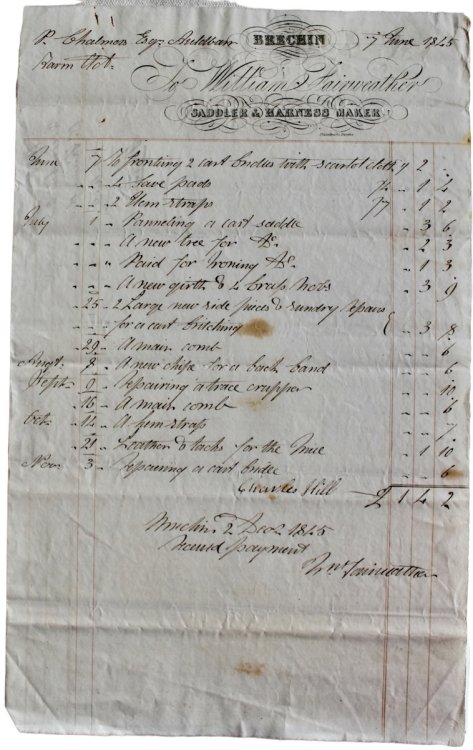 P. Chalmers Esqr Auldbar BRECHIN 7 June 1845
Farm Acct.
To William Fairweather
SADDLER & HARNESS MAKER
June 7 To fronting 2 cart bridles with scarlet cloth 2 "
" " 4 pads 4 1 4
" " 2 Hem straps 7 1 2
July 1 " Panneling a cart saddle " 3 6
" " " A new tree for Do " 2 3
" " " Paid for Ironing Do " 1 3
" " " A new girth & 4 brass nobs " 3 9
" 25 " 2 Large new side pieces & sundry repairs
" " " for a cart britching " 3 8
" 29 " A main comb " " 6
Augt 8 " A new chipe for a back band " " 6
Septr 9 " Repairing a trace crupper " " 10
" 16 " A main comb " " 6
Oct. 14 " A hem strap " " 7
" 21 " Leather & tacks for the 1 10
Novr 3 " Repairing a cart bridle " " 6
2 1 4 2
Brechin 2 Decr 1845
Received payment
Wm Fairweather